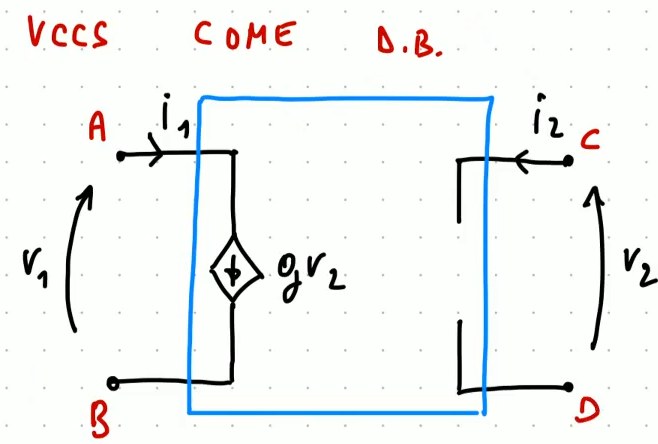 VCCS COME D.B.
A i1 i2 C
v1 gv2 v2
B D